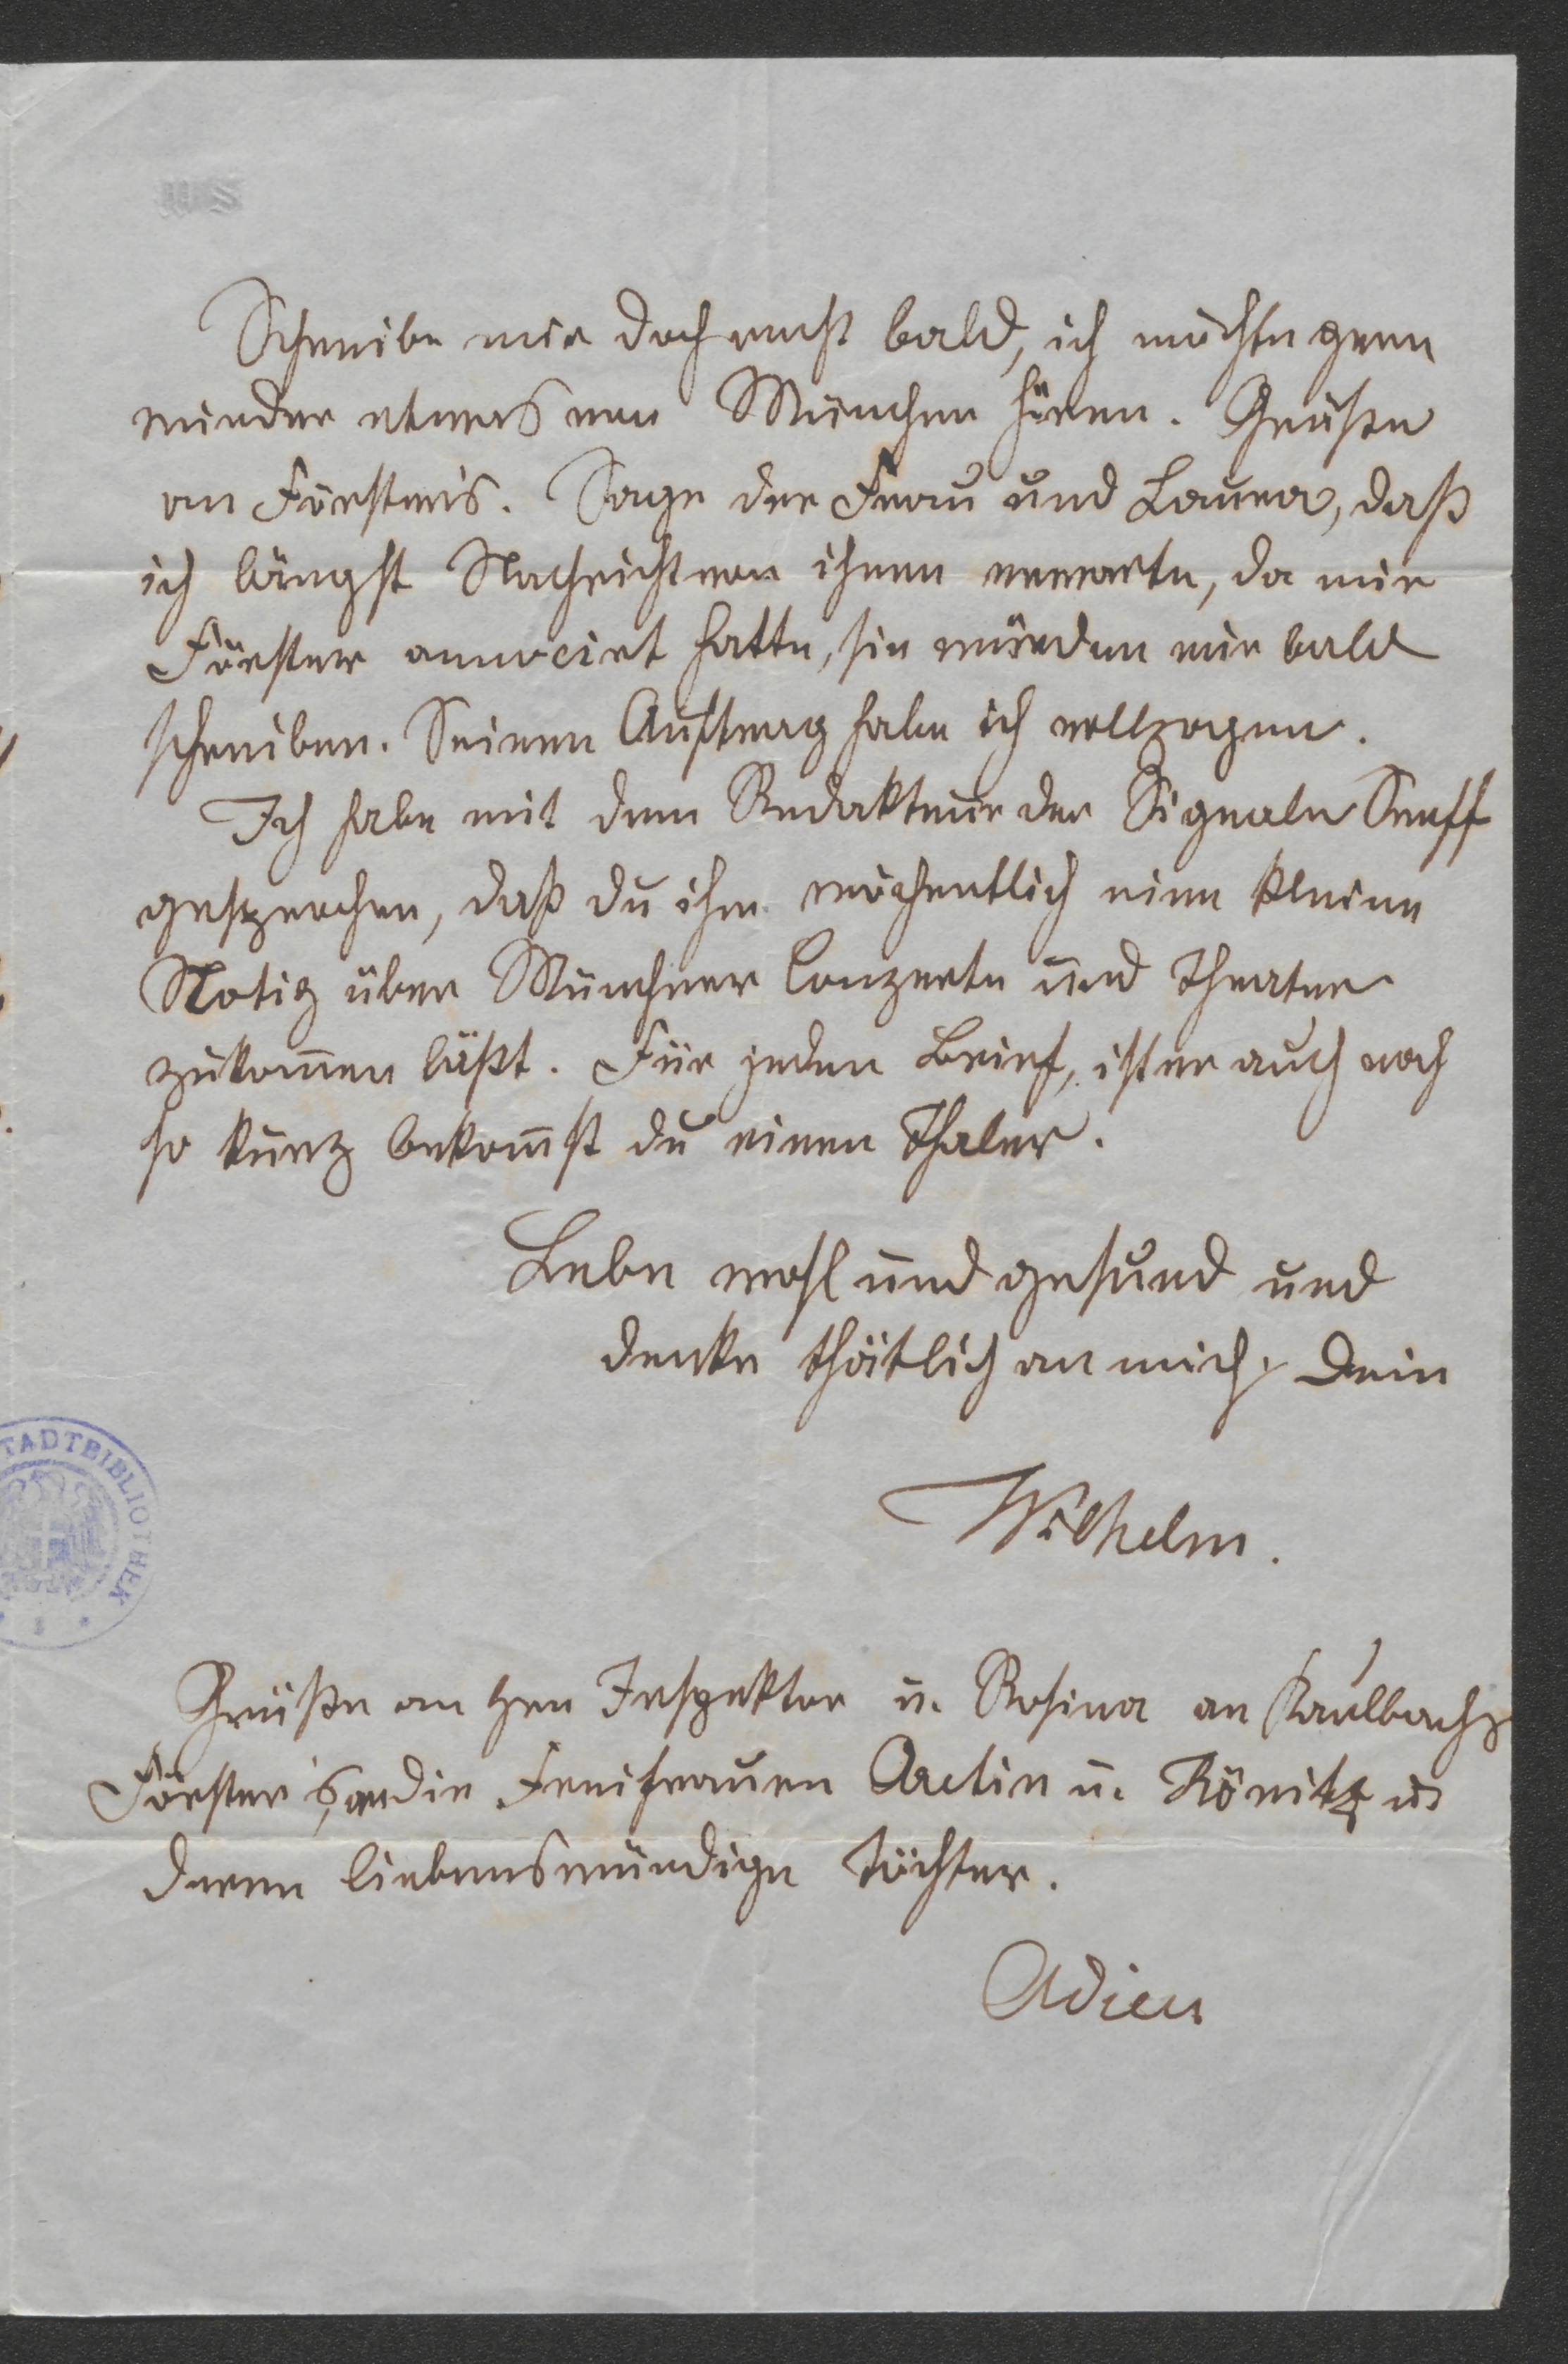 Schreibe mir doch recht bald, ich möchte gern
wieder etwas von München hören. Grüße
an Försters. Sage der Frau und Laura, daß
ich längst Nachricht von ihnen erwarte, da mir
Förster annocirt hatte, sie würden mir bald
schreiben. Seinen Auftrag habe ich vollzogen.
Ich habe mit dem Redakteur der Signale Senff
gesprochen, daß du ihm wöchentlich eine kleine
Notiz über Münchner Conzerte und Theater
zukom̄en läßt. Für jeden Brief, ist er auch noch
so kurz bekom̄st du einen Thaler.
Lebe wohl und gesund und
denke thätlich an mich. Dein
Wilhelm.
Grüße an Hrn Inspektor u. Rosina an Kaulbachs
Förster's, an die Freifrauen Aretin u. Könitz u.
deren liebenswürdige Töchter.
Adieu
STADTBIBLIOTHEK